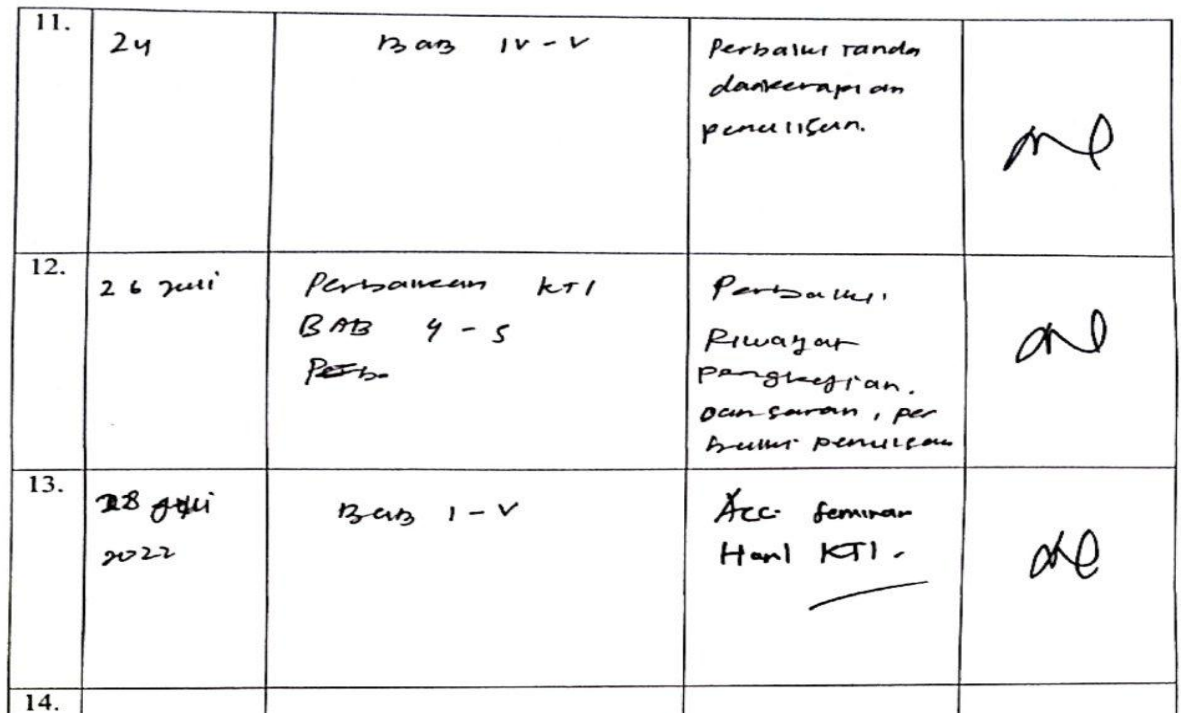 11.
24
Bab IV - V
Perbaiki tanda
dan kerapian
penulisan.
12.
26 Juli
Perbaikan KTI
BAB 4 - 5
Perbaiki
Riwayat
pengkajian.
Dan saran, per
baiki penulisan
13.
28 Juli
2022
Bab I - V
Acc Seminar
Hasil KTI.
14.